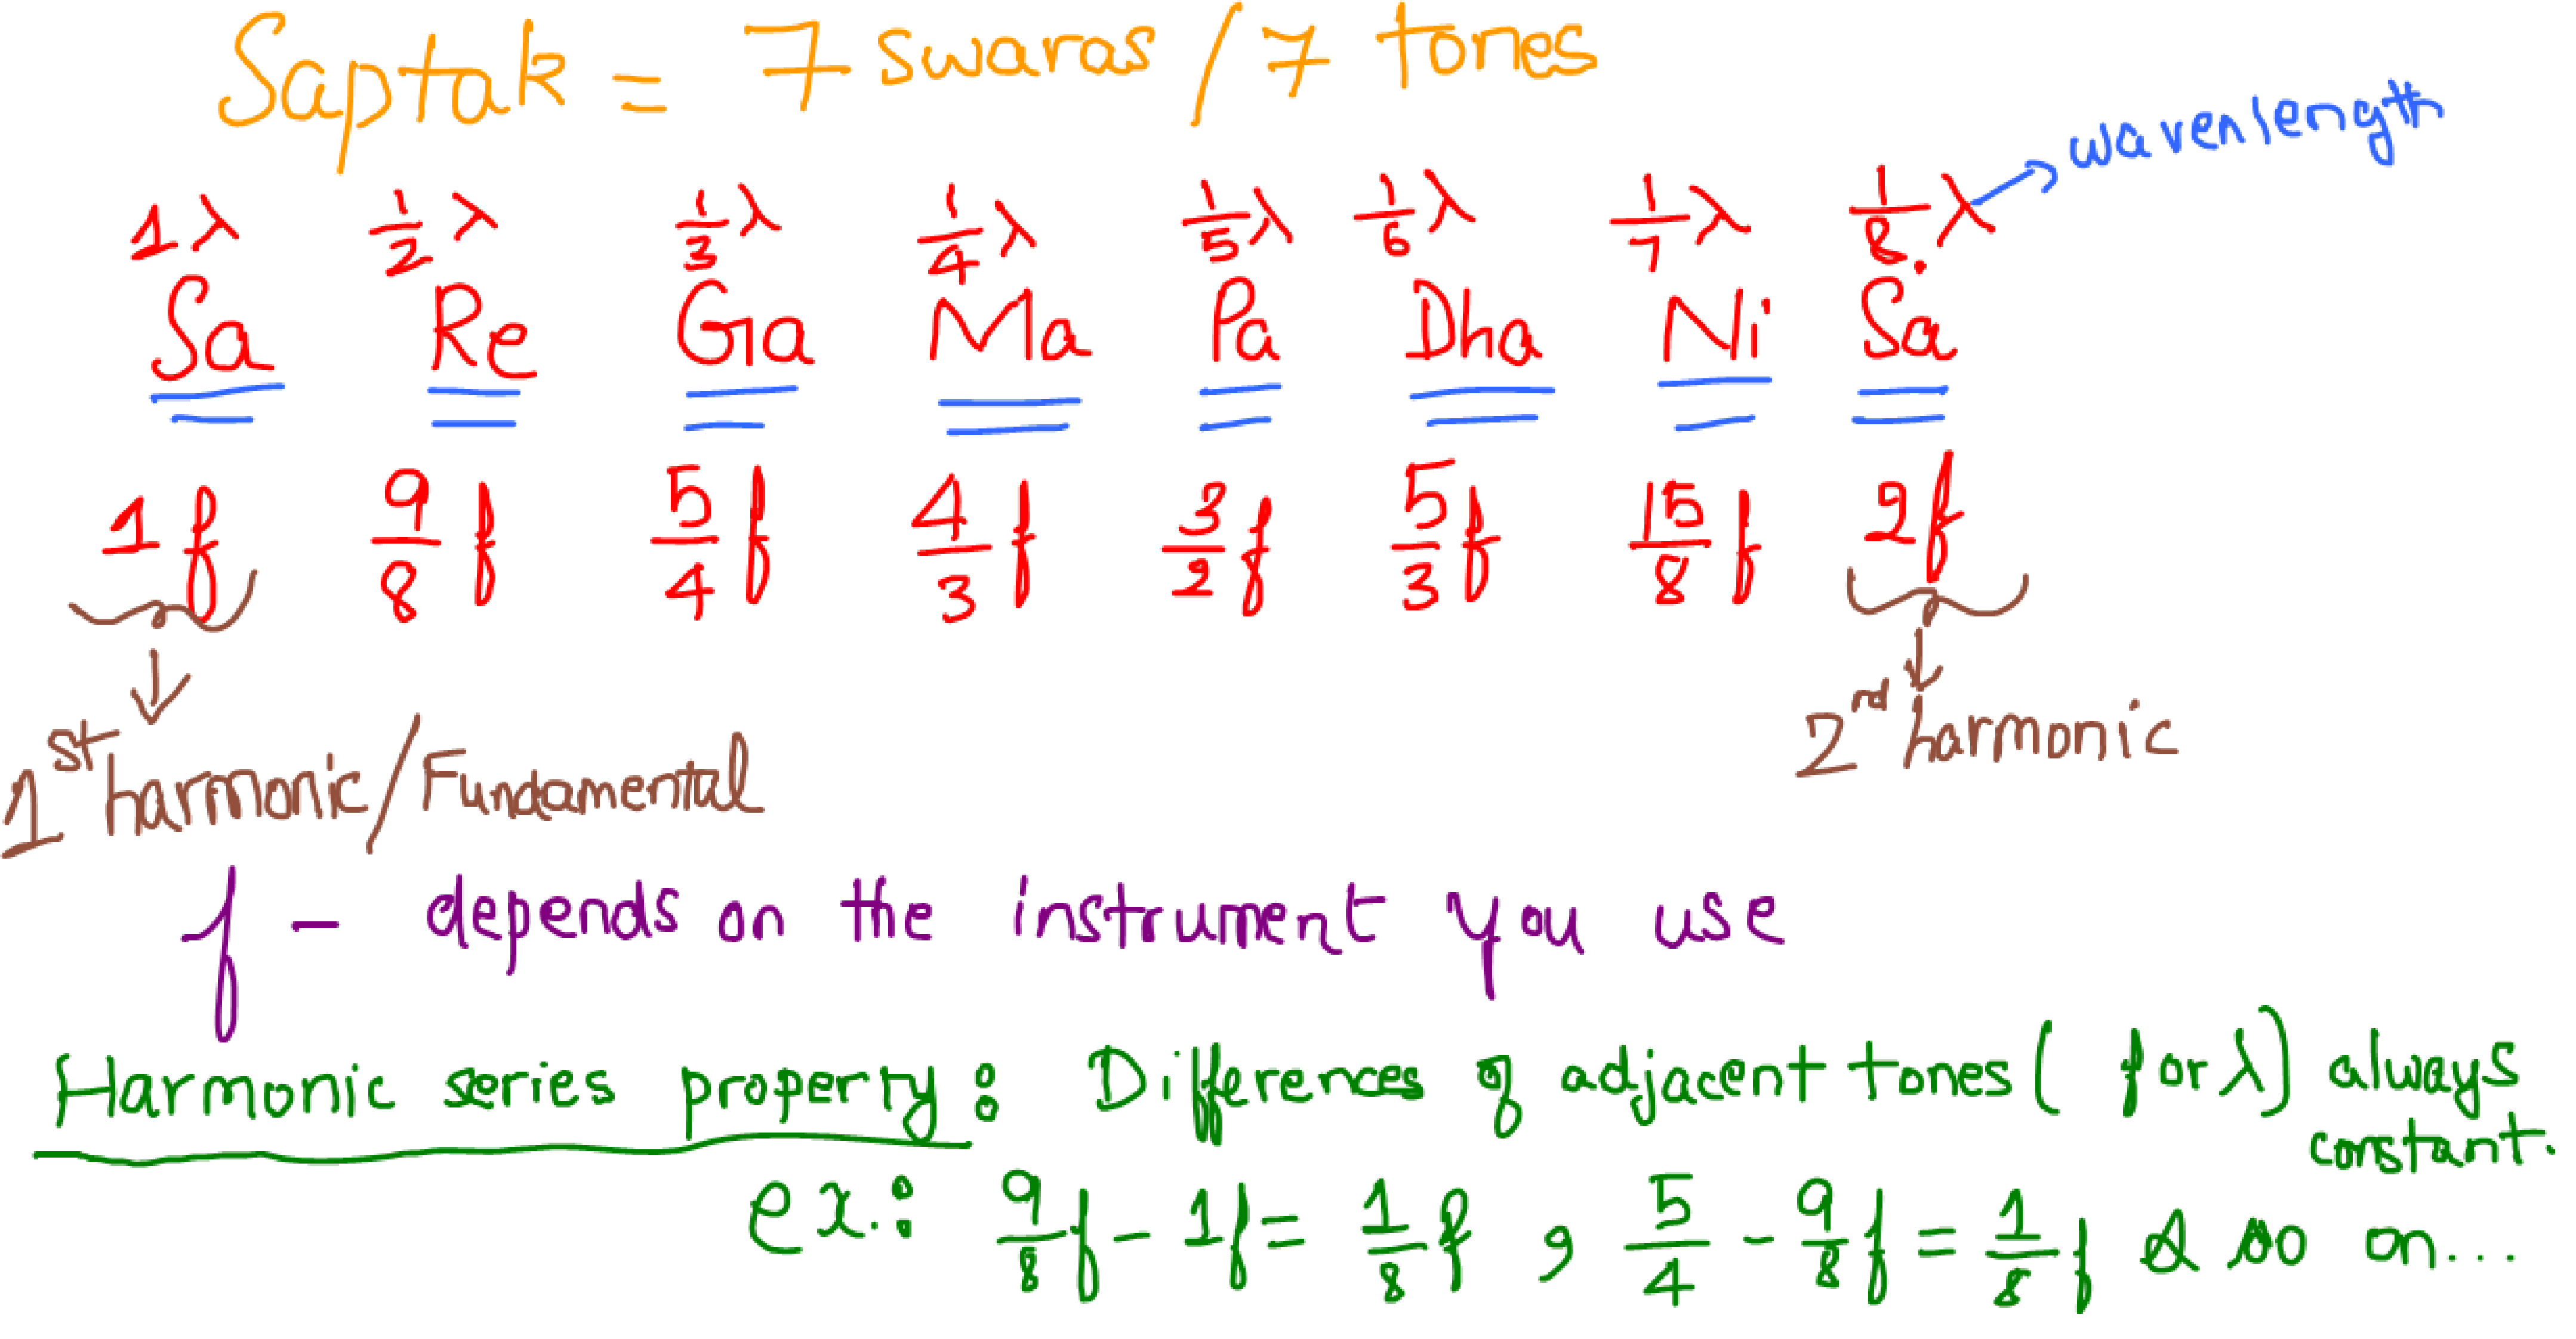 Saptak = 7 swaras / 7 tones
1λ 1/2 λ 1/3 λ 1/4 λ 1/5 λ 1/6 λ 1/7 λ 1/8 λ → wavenlength
Sa Re Ga Ma Pa Dha Ni Ṡa
1f 9/8 f 5/4 f 4/3 f 3/2 f 5/3 f 15/8 f 2f
1st harmonic/Fundamental 2rd harmonic
f - depends on the instrument you use
Harmonic series property: Differences of adjacent tones (f or λ) always
constant.
ex.: 9/8 f - 1f = 1/8 f, 5/4 - 9/8 f = 1/8 f & so on...